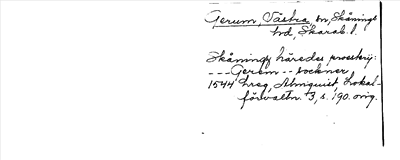 Gerum, Västra, sn, Skånings
hd, Skarab. l.
Skånings härads prosteri:
--- Gerem -- sockner
1544 hreg, Almquist, Lokal-
förvaltn. 3, s. 190. orig.